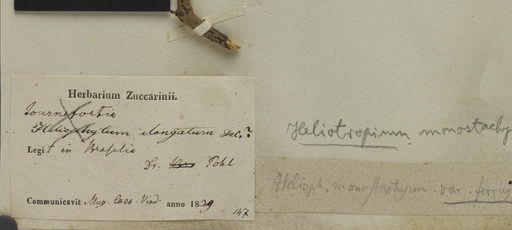 Herbarium Zuccarinii.
Tournefortia
Heliophytum elongatum DC.?
Legit in Brasilia
Dr. Pohl
Communicavit Mus. Caes. Vind. anno 1839
147
Heliotropium monostachy
Helioph. monostachyum var. ferrug